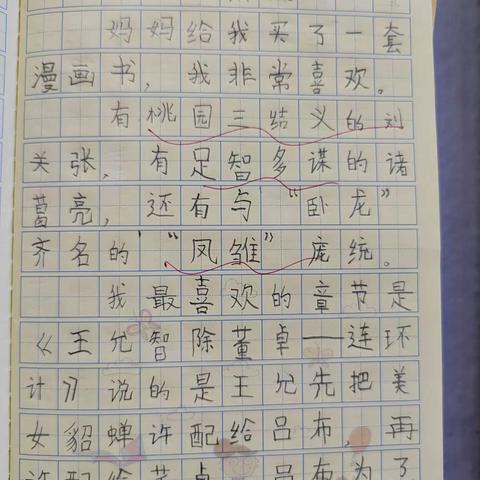 妈妈给我买了一套
漫画书，我非常喜欢。
有桃园三结义的刘
关张，有足智多谋的诸
葛亮，还有与“卧龙”
齐名的“凤雏”庞统。
我最喜欢的章节是
《王允智除董卓——连环
计》说的是王允先把美
女貂蝉许配给吕布，再
许配给董卓，吕布为了